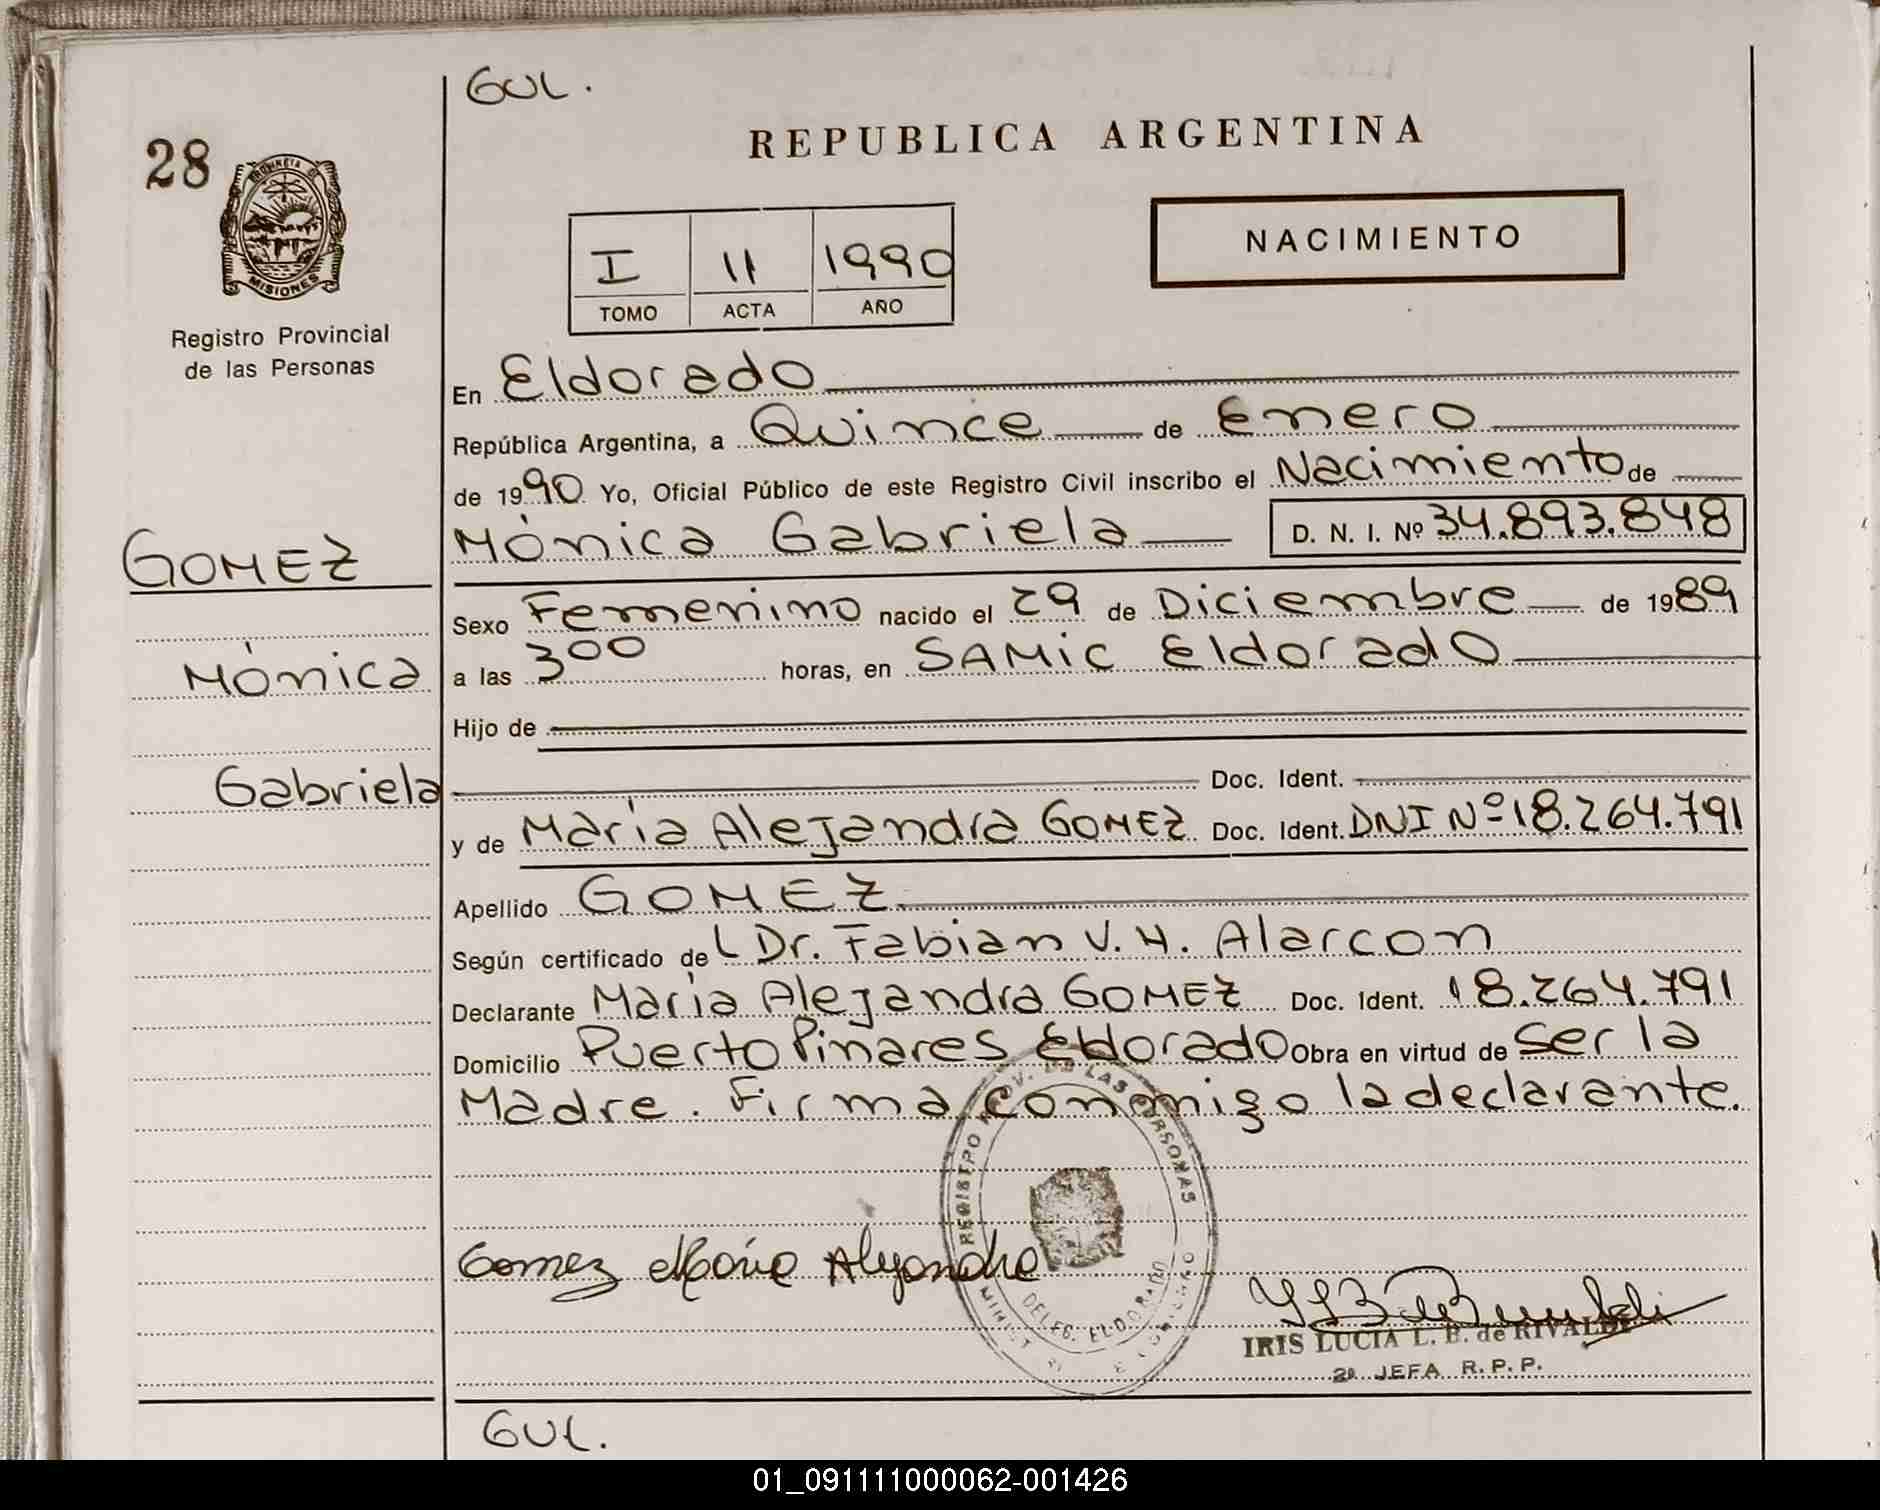 GUL.
28
REPUBLICA ARGENTINA
PROVINCIA DE
MISIONES
Registro Provincial
de las Personas
I 11 1990
TOMO ACTA AÑO
NACIMIENTO
En Eldorado
República Argentina, a Quince de Enero
de 1990 Yo, Oficial Público de este Registro Civil inscribo el Nacimiento de
Mónica Gabriela D. N. I. Nº 34.893.848
GOMEZ
Sexo Femenino nacido el 29 de Diciembre de 1989
Mónica
a las 300 horas, en SAMIC Eldorado
Hijo de
Gabriela
Doc. Ident.
y de María Alejandra GOMEZ Doc. Ident. DNI Nº 18.264.791
Apellido GOMEZ
Según certificado del Dr. Fabian V. H. Alarcon
Declarante María Alejandra GOMEZ Doc. Ident. 18.264.791
Domicilio Puerto Pinares Eldorado Obra en virtud de ser la
Madre. Firma conmigo la declarante.
REGISTRO PROV. DE LAS PERSONAS
DELEG. ELDORADO
Gomez Maria Alejandra
IRIS LUCIA L. B. de RIVALDI
2ª JEFA R. P. P.
GUL.
01_091111000062-001426